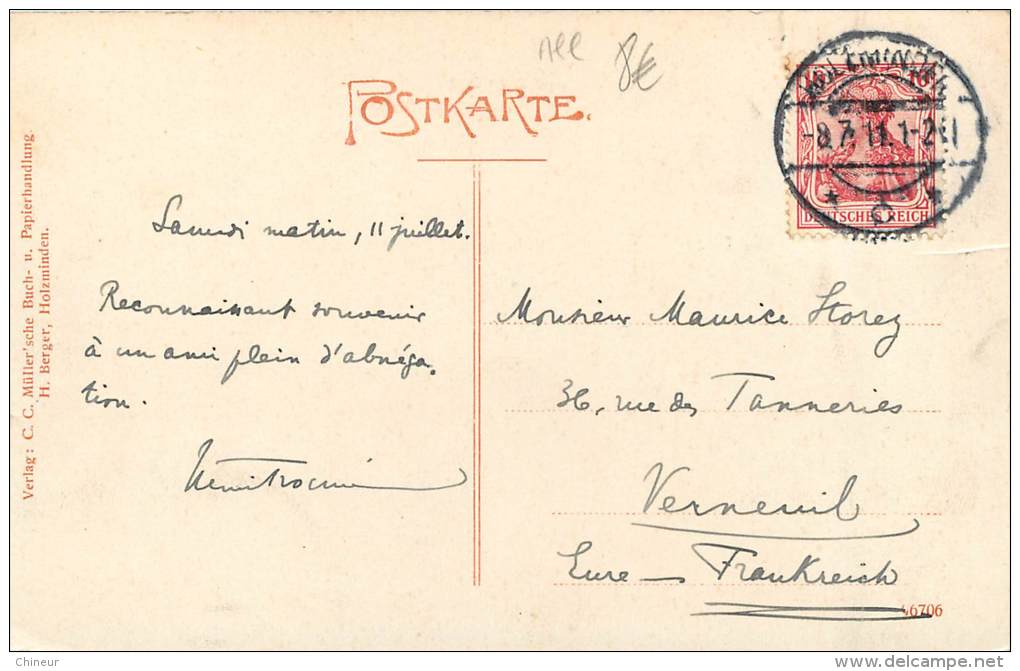 all
8€
POSTKARTE.
10 10
-8.7.11.1-2N
DEUTSCHES REICH
Samedi matin, 11 juillet.
Reconnaissant souvenir
à un ami plein d'abnéga-
tion.
Monsieur Maurice Storez
36, rue des Tanneries
Verneuil
Eure — Frankreich
46706
Verlag: C. C. Müller'sche Buch- u. Papierhandlung
H. Berger, Holzminden.
Chineur
delcampe.net